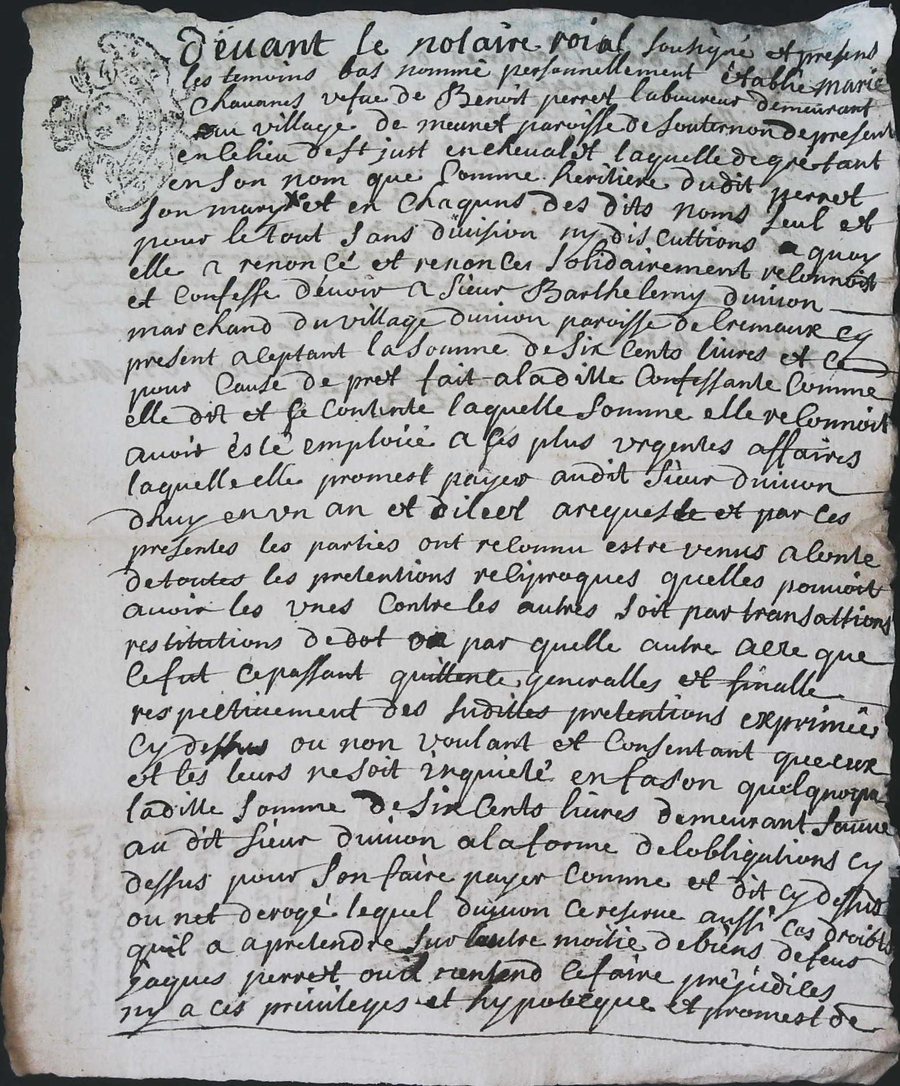 devant le notaire roial sousigné et presens
les temoins bas nommé personnellement établie marie
Chavanes vefue de Benoit perret laboureur demeurant
au village de meunet paroisse de souternon de present
en ce lieu de st just en chevalet laquelle de gré tant
en son nom que Comme heritiere dudit perret
son mary et en Chaquns des dits noms seul et
pour le tout sans division ny discuttions a quoy
elle a renoncé et renonces solidairement reconnoit
et Confesse devoir a sieur Barthelemy duivon
marchand du village duivon paroisse de Cremaux cy
present aceptant la somme de six Cents livres et ce
pour Cause de pret fait a la ditte Confessante Comme
elle dit et se Contente laquelle somme elle reconnoit
avoir esté emploiée a ses plus urgentes affaires
laquelle elle promest payer audit sieur duivon
dhuy en un an et di et par ces
presentes les parties ont reconnu estre venus a Conte
de toutes les pretentions reciproques quelles pouvoit
avoir les unes Contre les autres soit par transattions
restitutions de dot ou par quelle autre acte que
ce fut ce passant quittence generalles et finalle
respectivement des sudittes pretentions exprimées
cy dessus ou non voulant et Consentant que eux
et les leurs ne soit inquieté en fason quelquonque
laditte somme de six Cents livres demeurant sauve
au dit sieur duivon a la forme de lobligations cy
dessus pour sen faire payer Comme et dit cy dessus
ou net derogé lequel duivon ce reserve aussi ces droibts
quil a a pretendre sur lautre moitié de biens de feus
jaques perret ou il nentend ce faire préjudices
ny a ces privileges et hypoteque et promest de